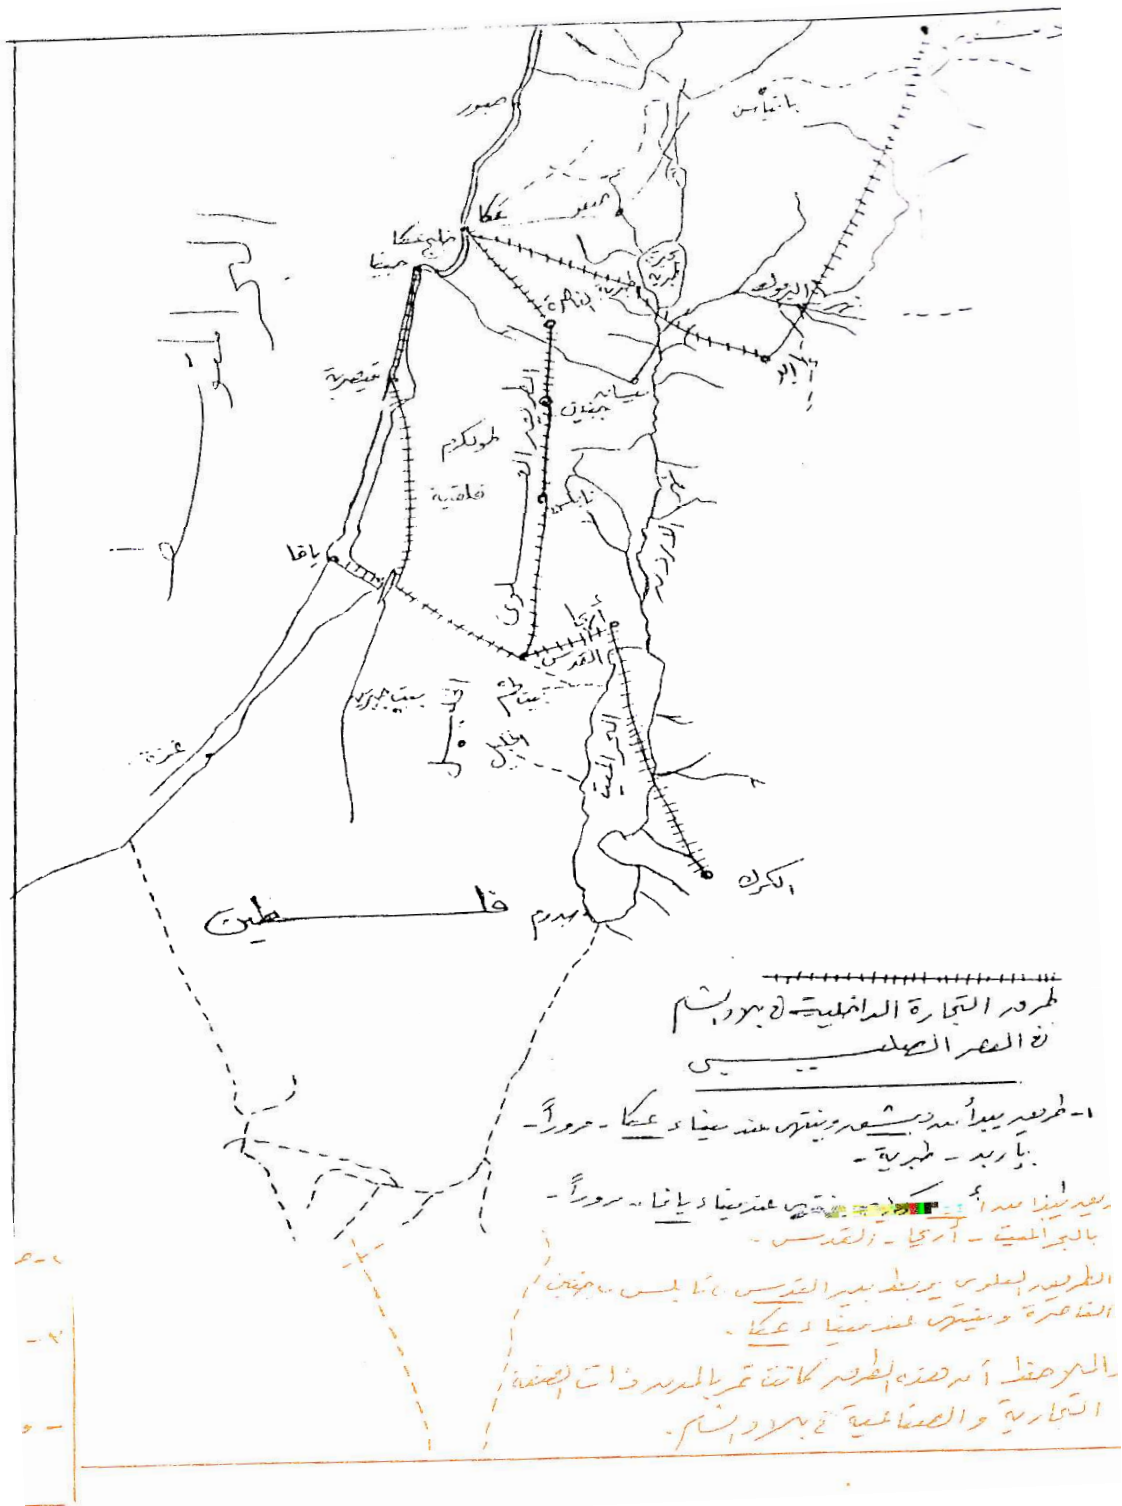 دمشق
بانياس
صور
عكا
خليج عكا
حيفا
صفد
بحيرة طبرية
طبرية
الناصرة
نهر اليرموك
اربد
قيصرية
بيسان
جنين
طولكرم
قلقيلية
نابلس
الطريق العلوي
نهر الأردن
يافا
أريحا
القدس
بيت لحم
بيت جبرين
الخليل
البحر الميت
غزة
الكرك
سدوم
فلسطين
البحر المتوسط
طرق التجارة الداخلية في بلاد الشام
في العصر الصليبي
١- طريق يبدأ من دمشق وينتهي عند ميناء عكا - مروراً -
بإربد - طبرية -
٢- عند ميناء يافا - مروراً -
بالبحر الميت - أريحا - القدس -
٣- الطريق العلوي يربط بين القدس، نابلس، جنين
الناصرة وينتهي عند ميناء عكا -
والملاحظ أن هذه الطرق كانت تمر بالمدن ذات الصفة
التجارية والصناعية في بلاد الشام.